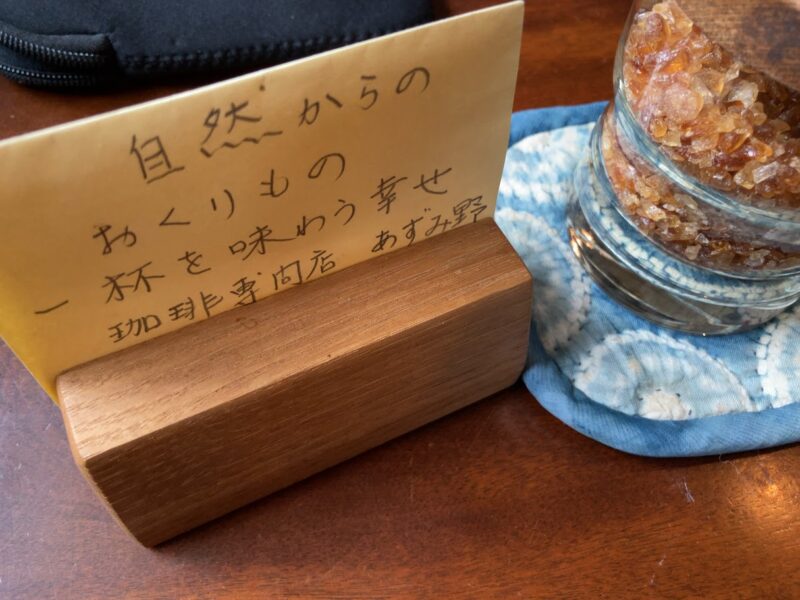 自然からの
おくりもの
一杯を味わう幸せ
珈琲専門店 あずみ野